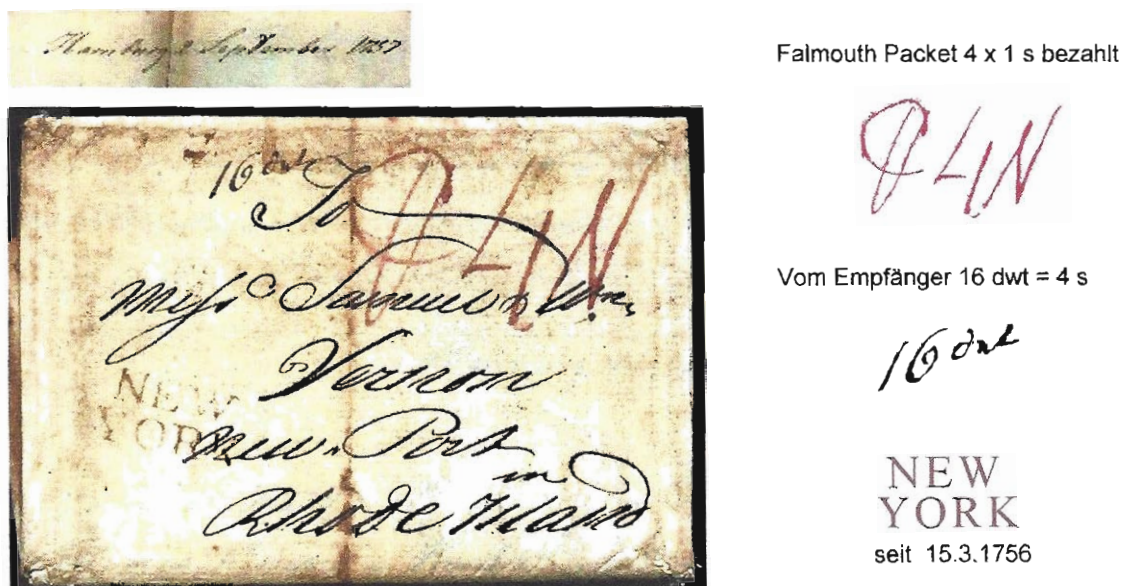 Hamburg 2 September 1757
16 dwt
To
Mess.rs Samuel & Wm.
Vernon
New Port
in
Rhode Island
NEW
YORK
Falmouth Packet 4 x 1 s bezahlt
Vom Empfänger 16 dwt = 4 s
16 dwt
NEW
YORK
seit 15.3.1756